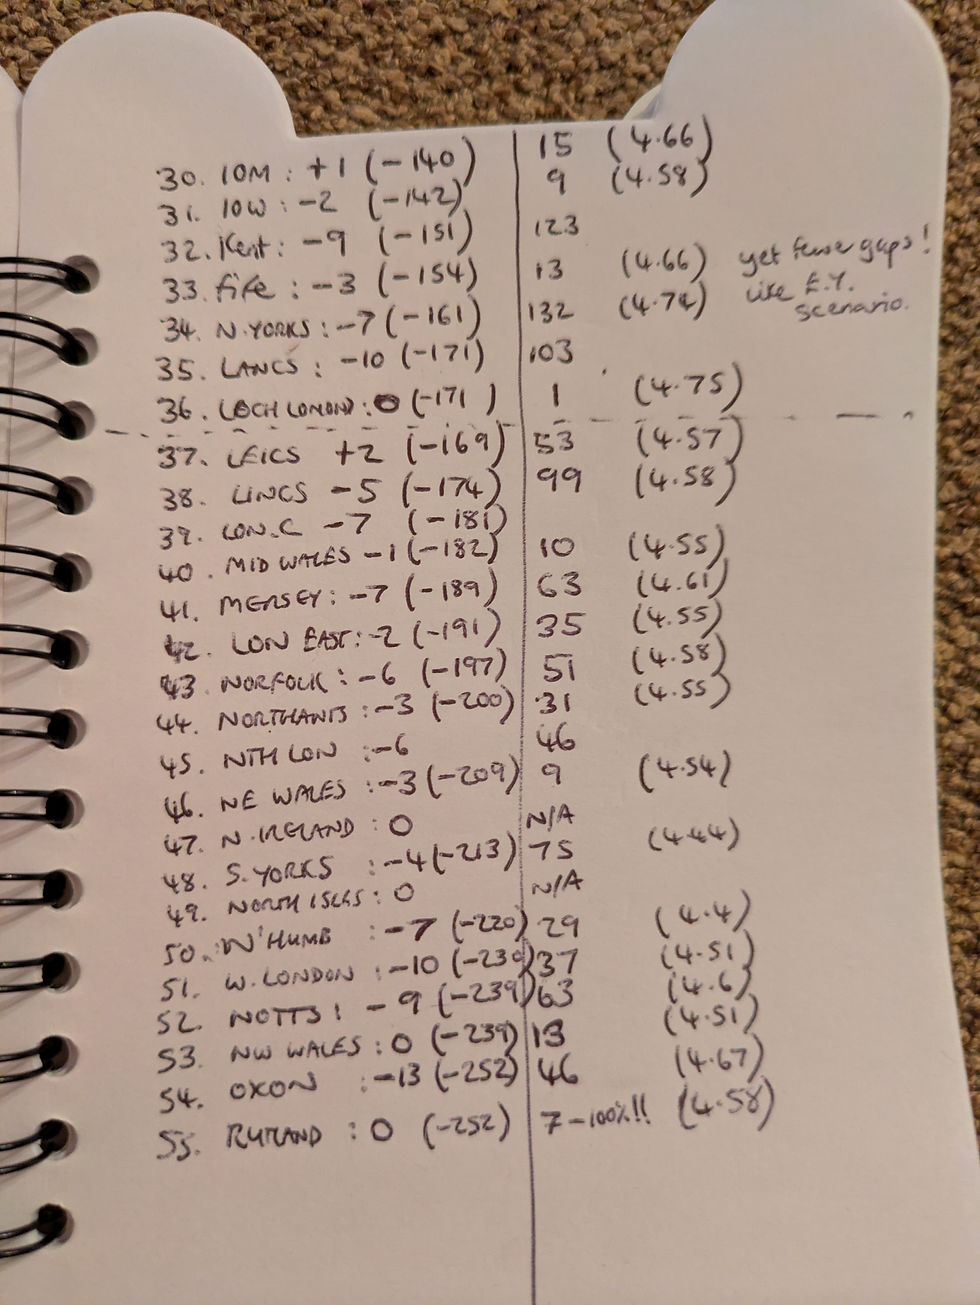 30. IOM : +1 (-140) 15 (4.66)
31. IOW : -2 (-142) 9 (4.58)
32. Kent : -9 (-151) 123
33. fife : -3 (-154) 13 (4.66) yet fewer gaps!
34. N.YORKS : -7 (-161) 132 (4.74) like E.Y. scenario.
35. LANCS : -10 (-171) 103
36. LOCH LOMOND : 0 (-171) 1 (4.75)
37. LEICS +2 (-169) 53 (4.57)
38. LINCS -5 (-174) 99 (4.58)
39. LON.C -7 (-181)
40. MID WALES -1 (-182) 10 (4.55)
41. MERSEY : -7 (-189) 63 (4.61)
42. LON EAST : -2 (-191) 35 (4.55)
43. NORFOLK : -6 (-197) 51 (4.58)
44. NORTHANTS : -3 (-200) 31 (4.55)
45. NTH LON : -6 46
46. NE WALES : -3 (-209) 9 (4.54)
47. N.IRELAND : 0 N/A
48. S.YORKS : -4 (-213) 75 (4.44)
49. NORTH ISLES : 0 N/A
50. N'HUMB : -7 (-220) 29 (4.4)
51. W.LONDON : -10 (-230) 37 (4.51)
52. NOTTS : -9 (-239) 63 (4.6)
53. NW WALES : 0 (-239) 13 (4.51)
54. OXON : -13 (-252) 46 (4.67)
55. RUTLAND : 0 (-252) 7 - 100%!! (4.58)